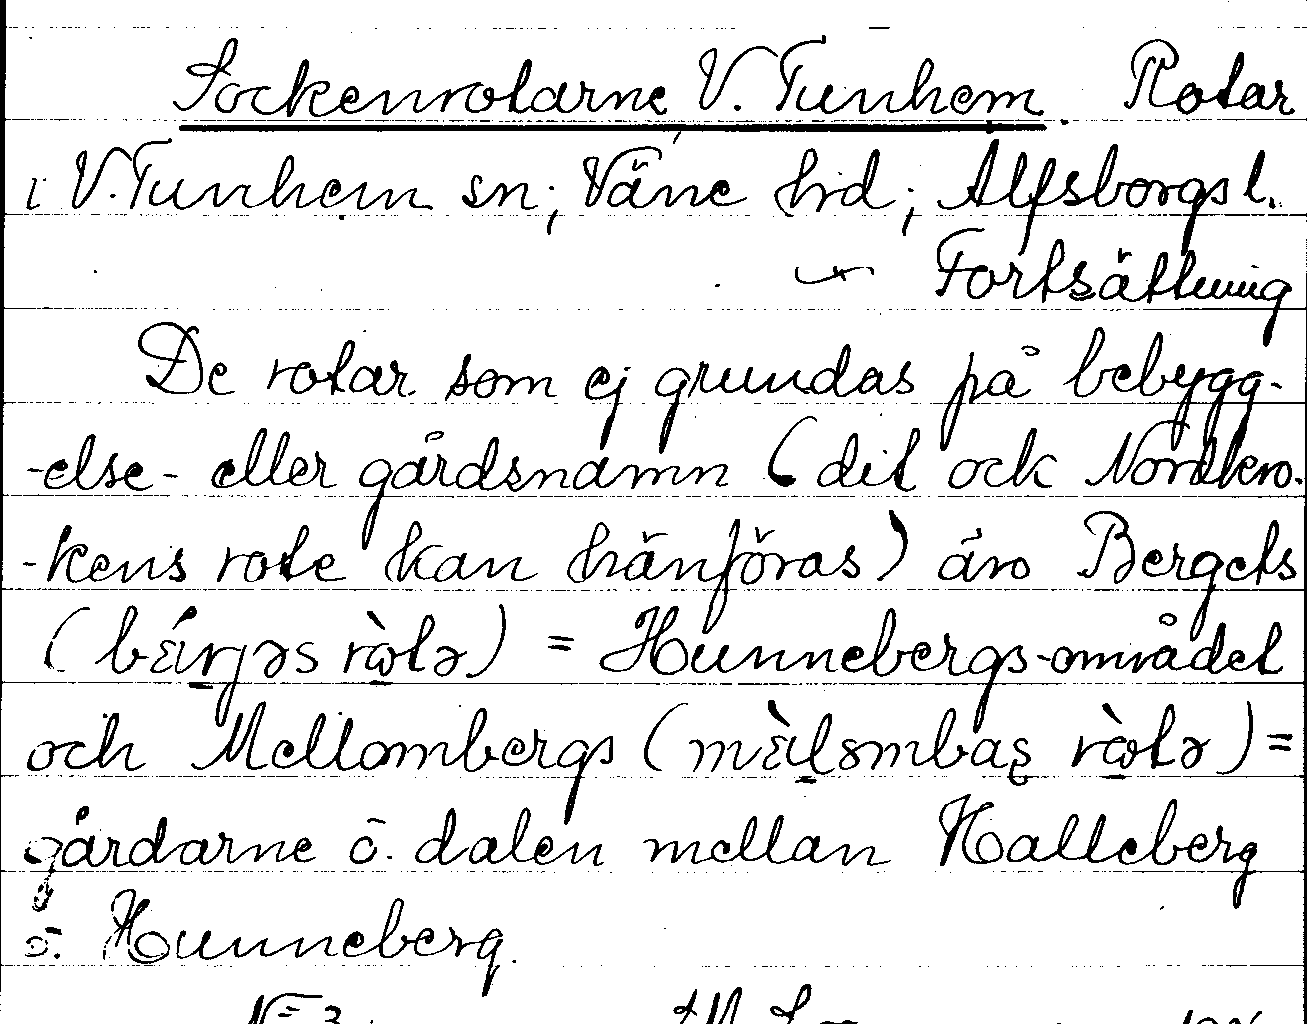 Sockenrotarne V. Tunhem. Rotar
i V. Tunhem sn; Väne hd; Älfsborgs l.
Fortsättning
De rotar som ej grundas på bebygg-
-else- eller gårdsnamn (dit ock Nordkro-
-kens rote kan hänföras) äro Bergets
(bǽrjəs rὼtə) = Hunnebergs-området
och Mellombergs (mæ̀l̥smbaʂ rὼtə) =
gårdarne o. dalen mellan Halleberg
o. Hunneberg.
№ 3